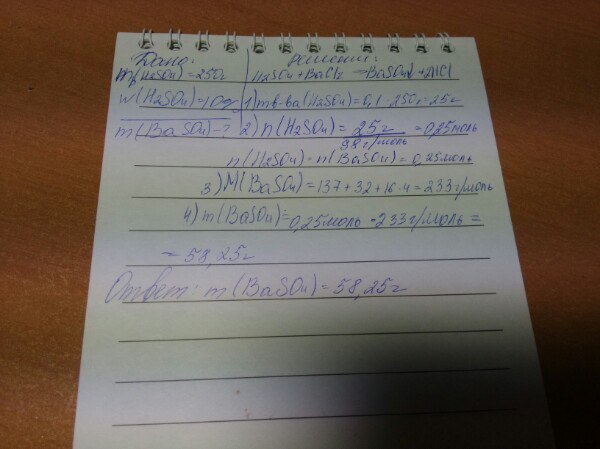 Дано:
m(H2SO4)=250г
w(H2SO4)=10%
m(BaSO4)-?
Решение:
H2SO4+BaCl2=BaSO4↓+2HCl
1) mв-ва(H2SO4)=0,1·250г=25г
2) n(H2SO4)=25г/98г/моль=0,25моль
n(H2SO4)=n(BaSO4)=0,25моль
3) M(BaSO4)=137+32+16·4=233г/моль
4) m(BaSO4)=0,25моль·233г/моль=
=58,25г
Ответ: m(BaSO4)=58,25г